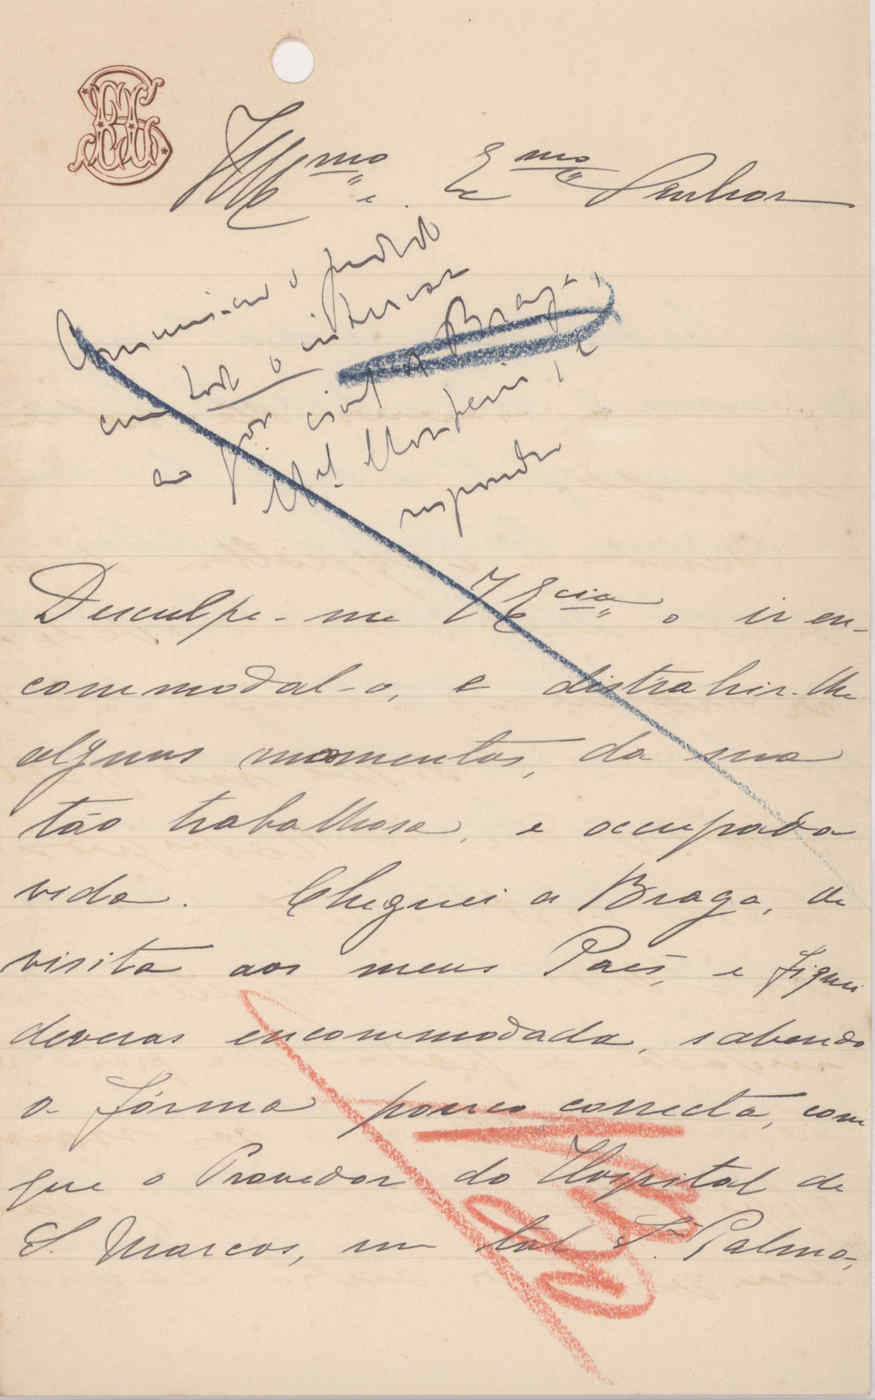 Ill.mo e Ex.mo Senhor
Communicar o pedido
com todo o interesse
ao gov. civil de Braga,
Mel. Monteiro, e
responder
Desculpe-me V Ex.cia o ir en-
commodal-o, e distrahir-lhe
alguns momentos, da sua
tão trabalhosa, e occupada
vida. Cheguei a Braga, de
visita aos meus Paes, e fiquei
deveras encommodada, sabendo
a fórma pouco correcta, com
que o Provedor do Hospital de
S. Marcos, um tal Sr. Palma,